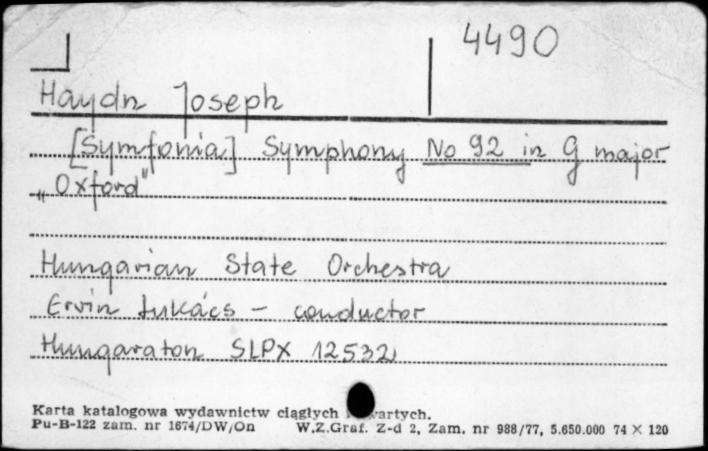 4490
Haydn Joseph
[Symfonia] Symphony No 92 in G major
„Oxford"
Hungarian State Orchestra
Ervin Lukács - conductor
Hungaraton SLPX 12532
Karta katalogowa wydawnictw ciągłych
Pu-B-122 zam. nr 1674/DW/On W.Z.Graf. Z-d 2, Zam. nr 988/77, 5.650.000 74 X 120